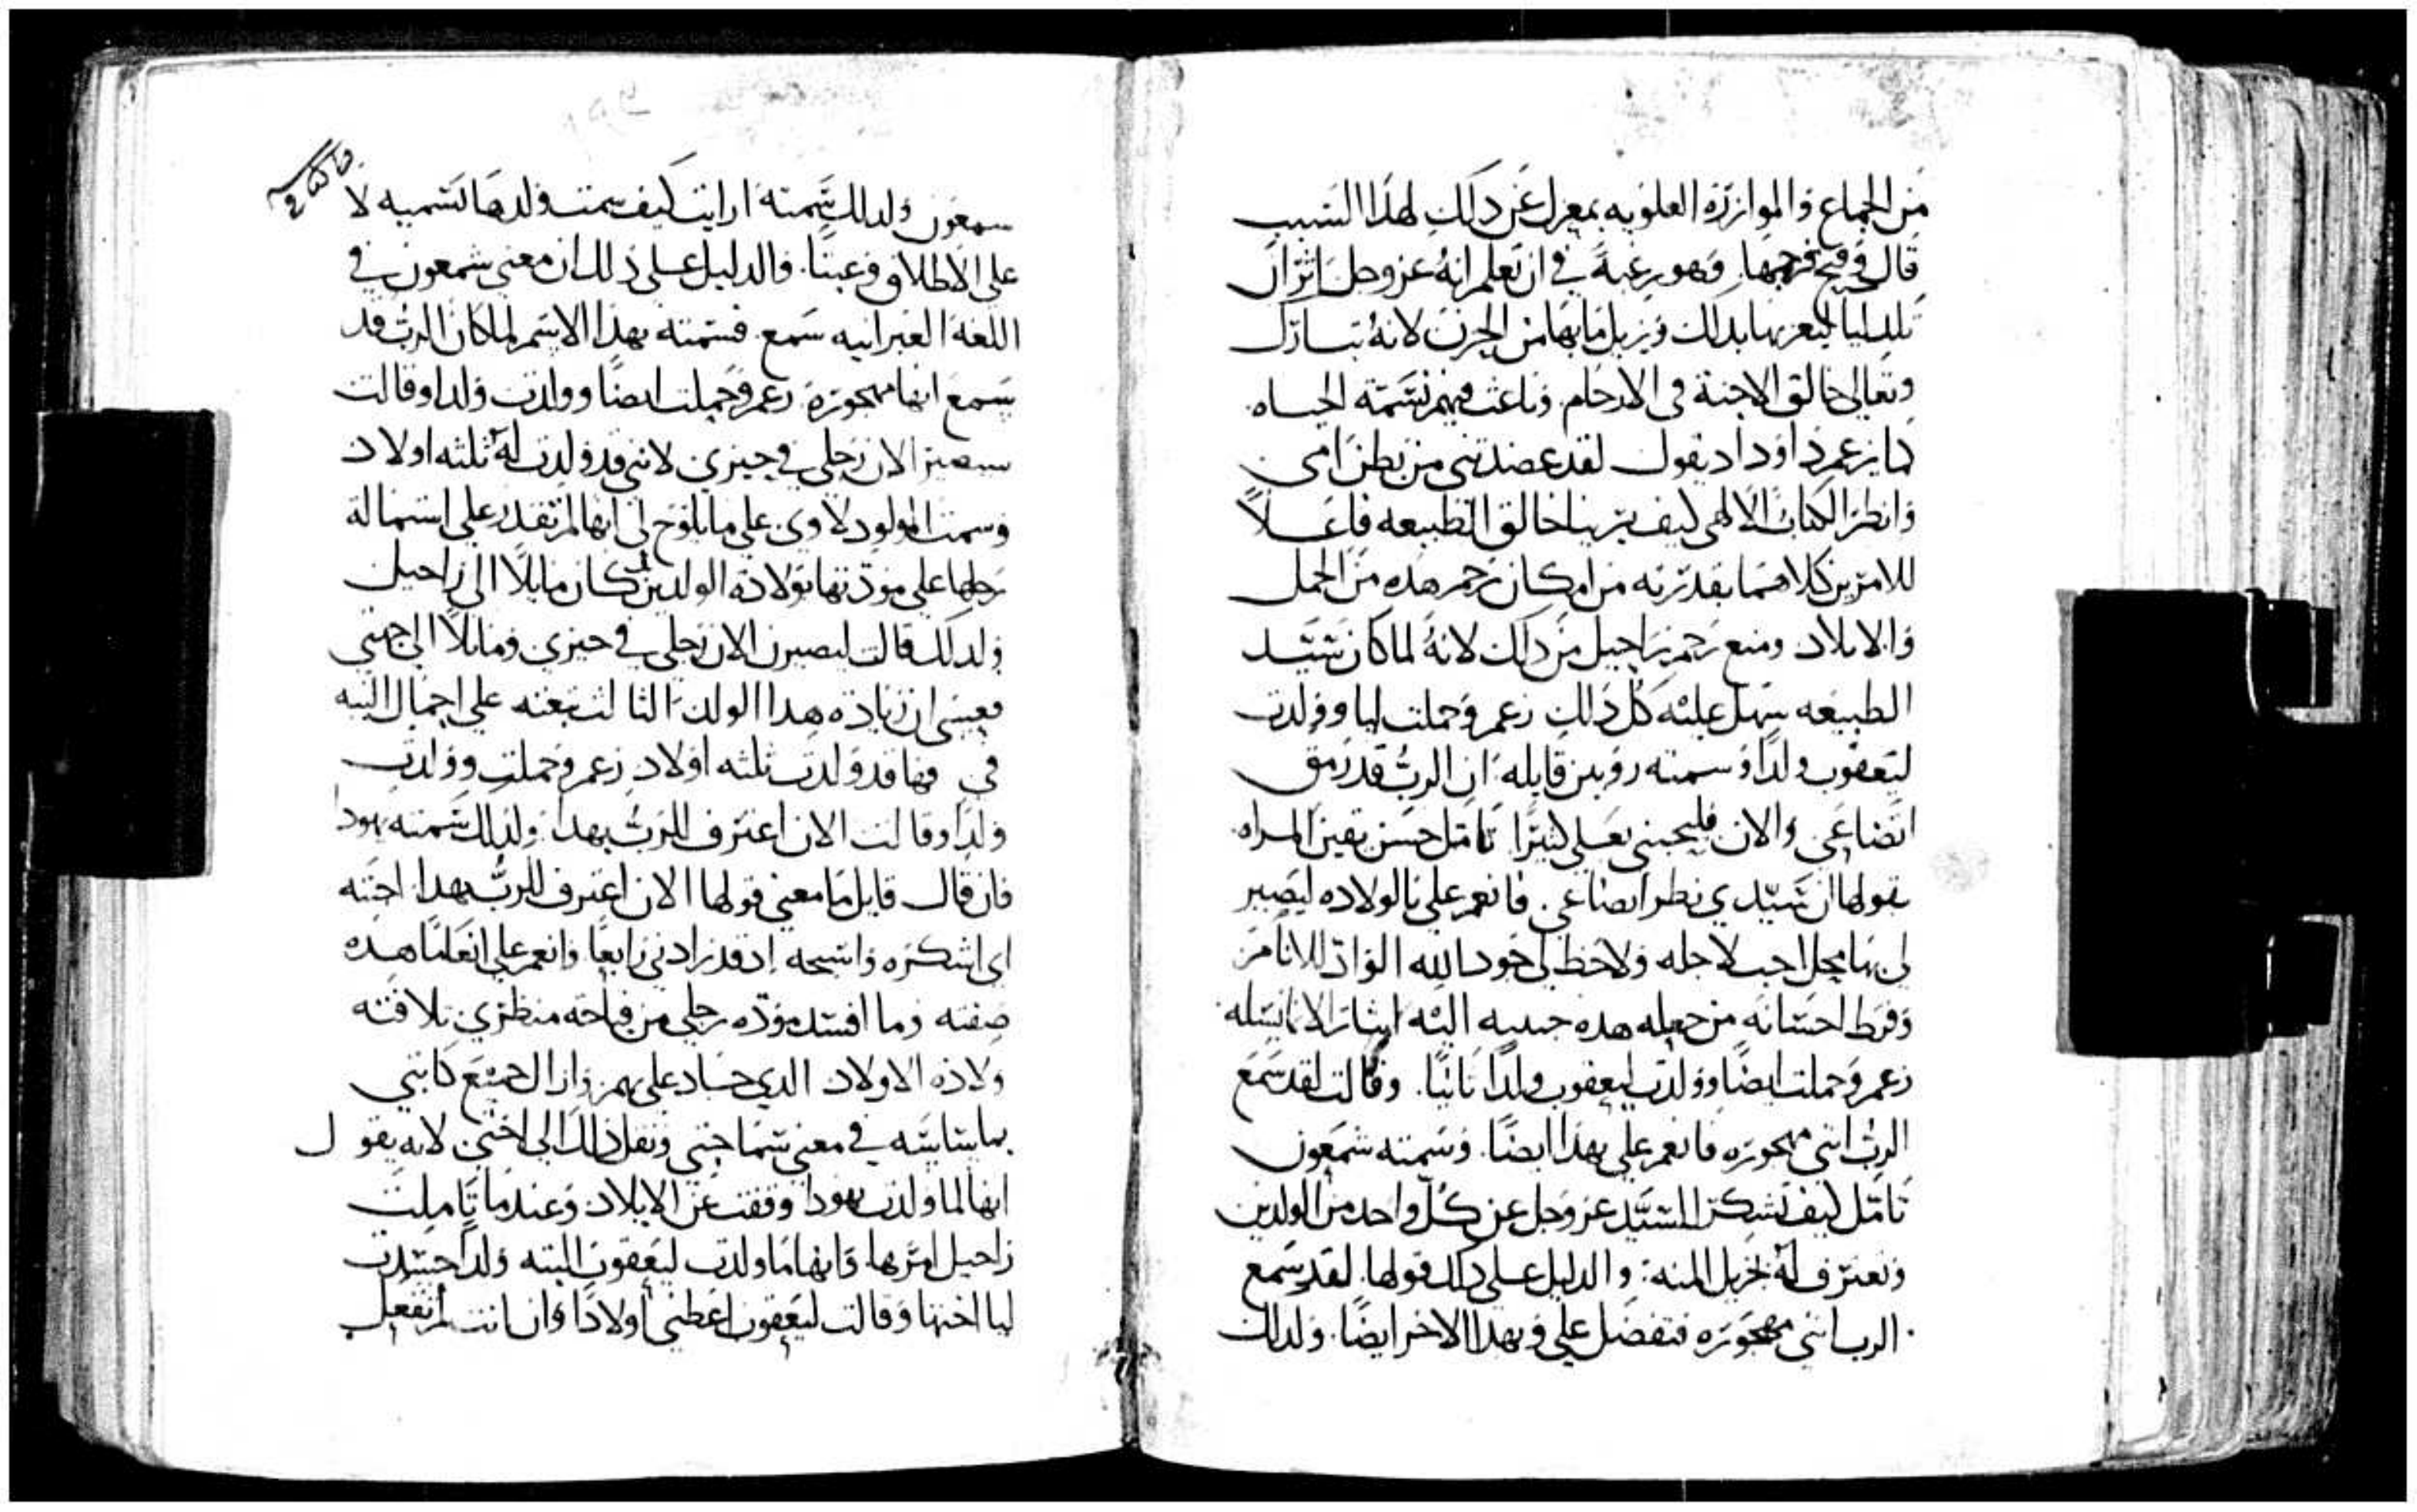 من الجماع والموازرة العلويه بمعزل عن دلك لهدا السبب
قال وفتح رحمها. وهو رغبة في ان تعلم انهُ عز وجل اثر ان
تلد ليا ليعزيها بدلك ويزيل ما بها من الحزن لانهُ تبارك
وتعالى خالق الاجنة في الارحام. وباعث فيهم نسمة الحياه.
كما يزعم داوداد يقول لقد عضدتني من بطن امي
وانظر الكتاب الالهي كيف يرينا خالق الطبيعه فاعلاً
للامرين كلاهما بقدرته من امكان رحم هده من الحمل
والايلاد ومنع رحم راحيل من دلك لانهُ لما كان سيد
الطبيعه سهل عليه كل دلك زعم وحملت ليا وولدت
ليعقوب ولداً وسمته روبين قايله ان الربُّ قد رمق
اتضاعي والان فليحبني بعلي كثيرًا تامل حسن يقين المراه.
بقولها ان سيدي نظر اتضاعي. فانعم علي بالولاده ليصير
لي بها محل احب لاجله ولاحظ لي جود الله الواد للانام
وفرط احسانه من جعله هده حبيبه اليه ايثار الانايتله
زعم وحملت ايضًا وولدت ليعقوب ولدًا ثانيًا. وقالت لقد سمع
الرب انني مهجوره فانعم علي بهدا ايضًا. وسمته شمعون
تامل كيف تشكر السيد عز وجل عن كل واحد من الولدين
وتعترف لهُ بجزيل المنه: والدليل على دلك قولها لقد سمع
الرب انني مهجوره فتفضل علي وبهدا الاخر ايضًا. ولدلك
سمعون ولدلك سمته ارايت كيف سمت ولدها تسميه لا
على الاطلاق وعبثًا. والدليل على دلك ان معني شمعون في
اللغة العبرانيه سمع. فسمته بهدا الاسم لما كان الربُّ قد
سمع انها مهجوره. زعم وحملت ايضًا وولدت ولدا وقالت
سيصير الان رجلي في حيزي لانني قد ولدت لهُ ثلثه اولاد
وسمت المولود لاوي. علي ما يلوح لي انها لم تقدر علي استمالة
رجلها علي مودتها بولادة الولدين كان مايلاً الى راحيل
ولدلك قالت ليصيرن الان رجلي في حيزي ومايلاً الي جهتي
فعسي ان زيادة هدا الولد الثالث تبعثه علي اجمال النيه
في فها قد ولدت ثلثه اولاد زعم وحملت وولدت
ولدا وقالت الان اعترف للربُّ بهدا. ولدلك سمته يهودا
فان قال قايل ما معني قولها الان اعترف للربُّ بهدا. اجبته
اي اشكره واسبحه اد قد زادني رابعًا وانعم علي انعامًا هده
صفته وما افسد موده رجلي من قباحه منظري تلافته
ولاده الاولاد الدي جاد علي بهم وازال جميع كابتي
لانه يقول
انها لما ولدت يهودا وقفت عن الايلاد وعندما تاملت
راحيل امرها وانها ما ولدت ليعقوب البته ولداً حسدت
ليا اختها وقالت ليعقوب اعطني اولادًا وان انت لم تفعل